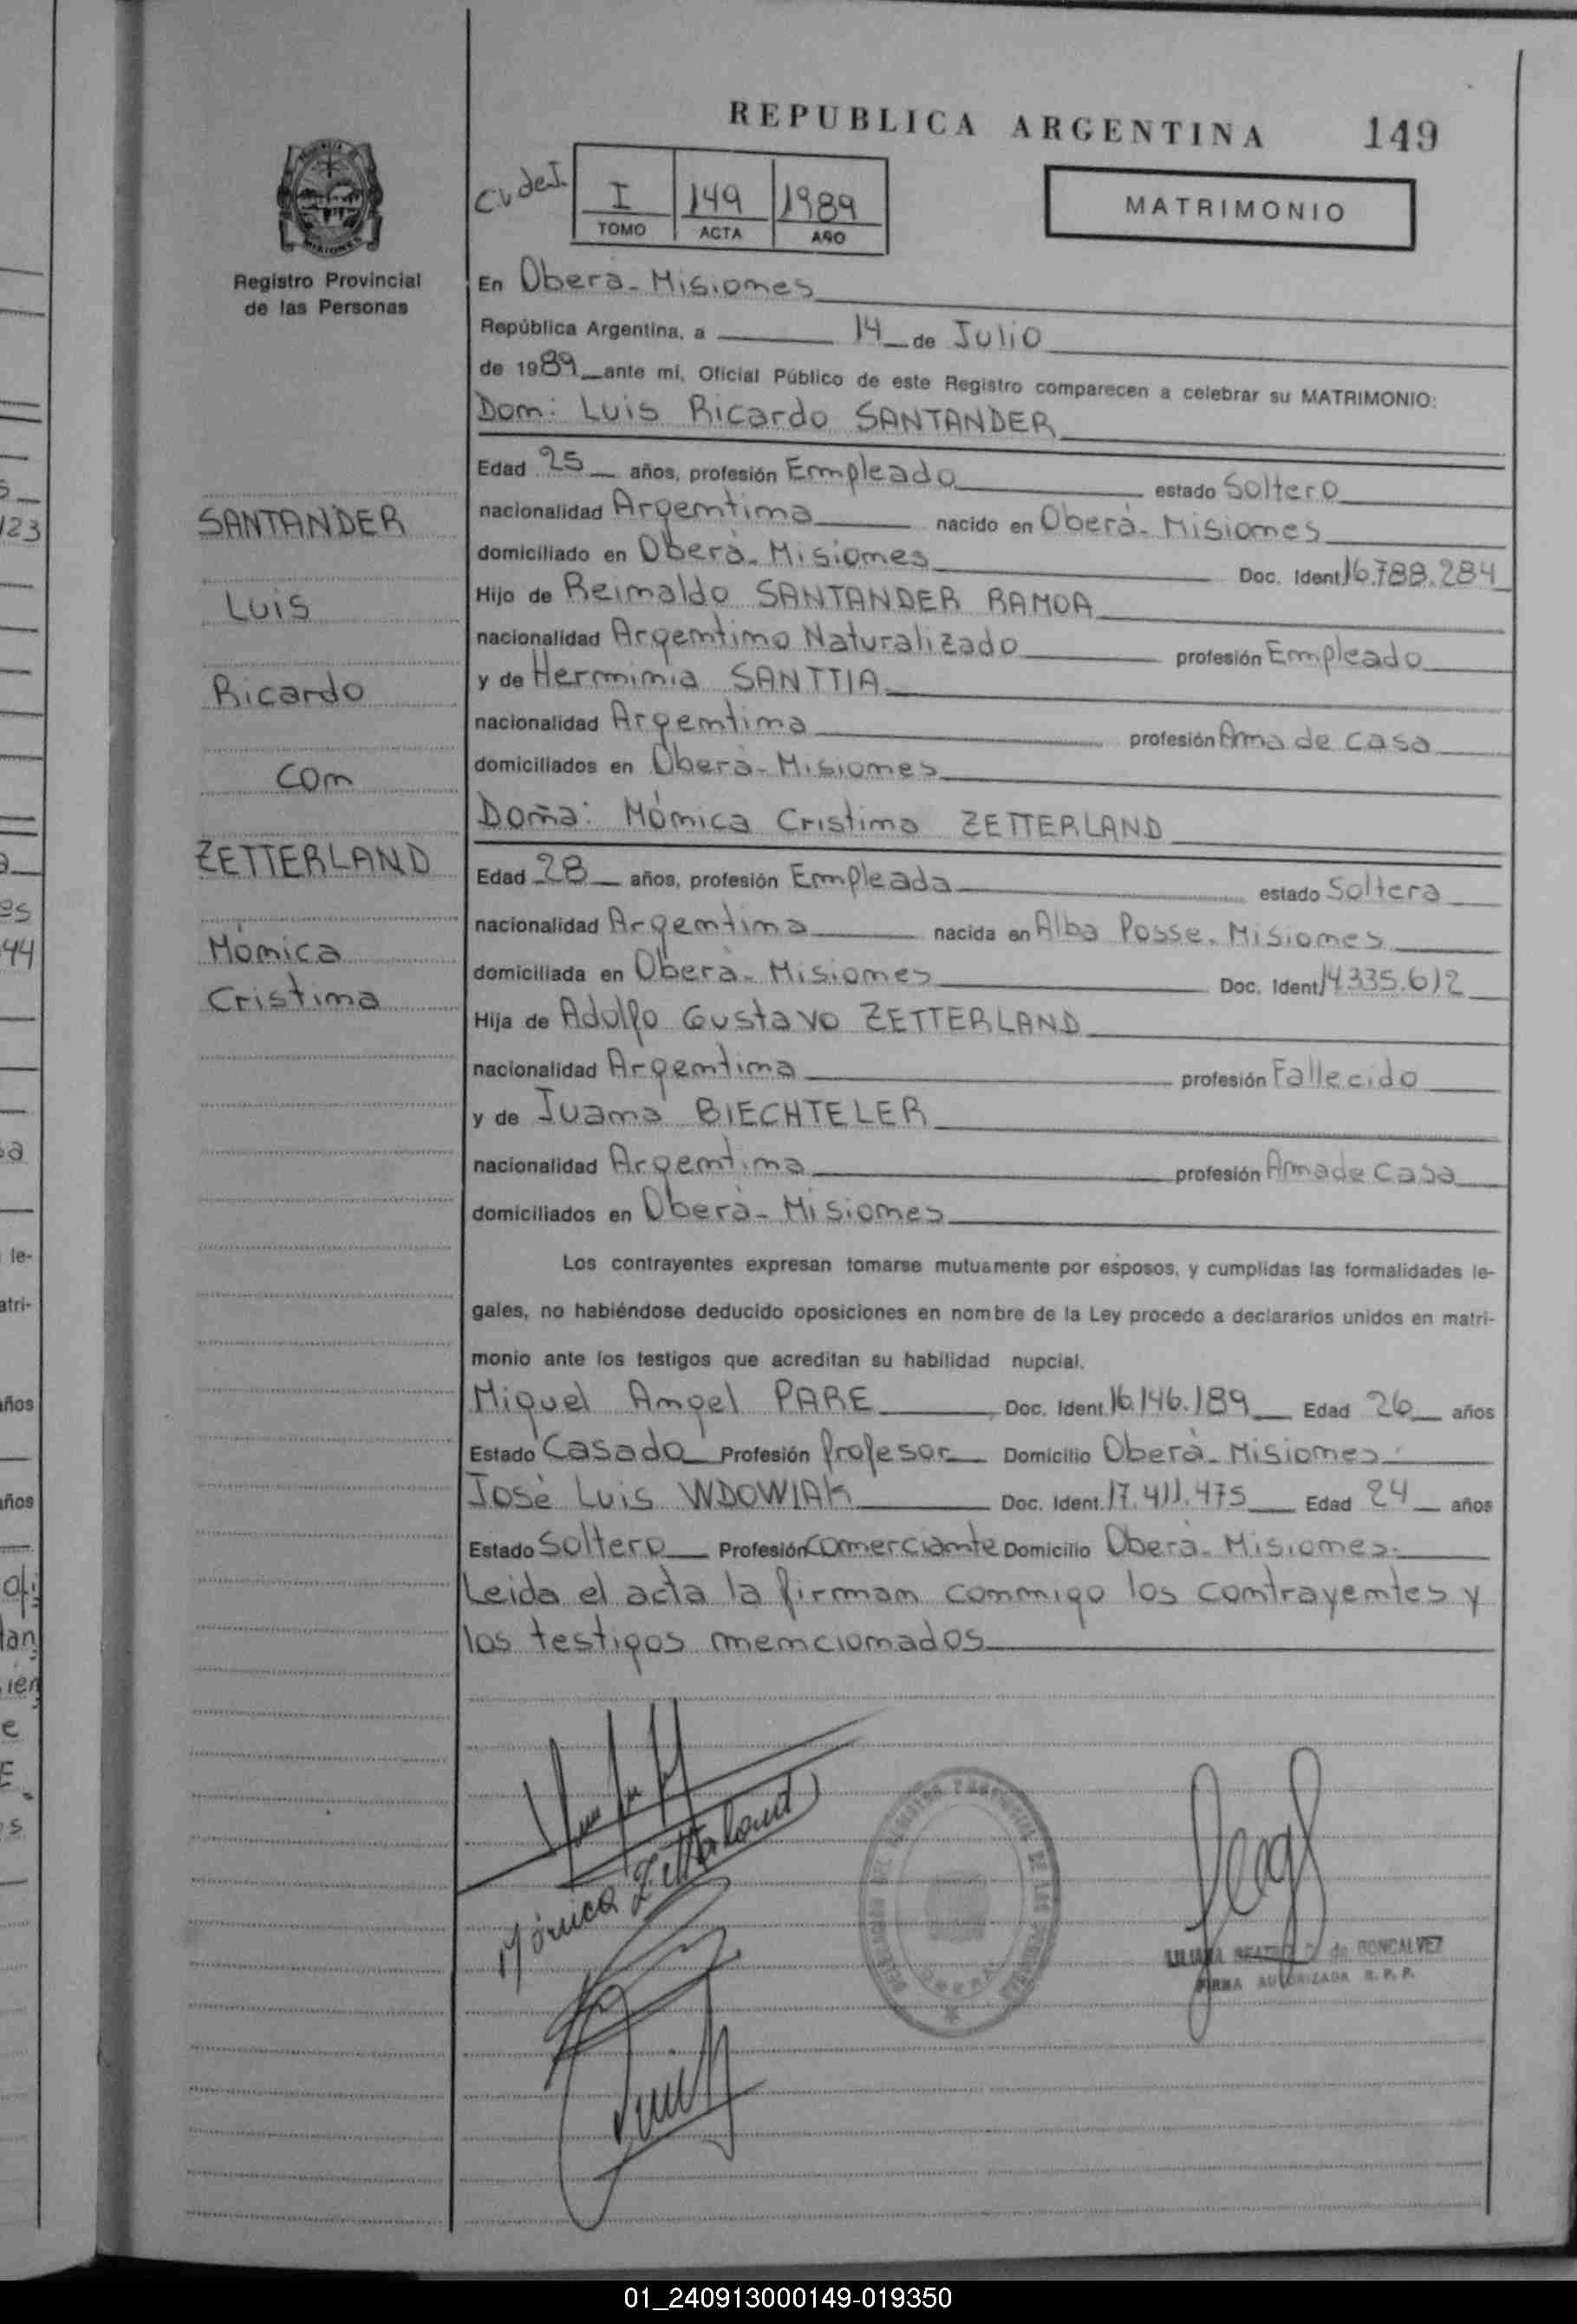 REPUBLICA ARGENTINA 149
I 149 1989
TOMO ACTA AÑO
MATRIMONIO
Registro Provincial
de las Personas
En Oberà - Misiones
República Argentina, a 14 de Julio
de 1989 ante mí, Oficial Público de este Registro comparecen a celebrar su MATRIMONIO:
Don: Luis Ricardo SANTANDER
Edad 25 años, profesión Empleado estado Soltero
nacionalidad Argentina nacido en Oberà - Misiones
domiciliado en Oberà - Misiones Doc. Ident. 16.788.284
Hijo de Reinaldo SANTANDER RAMOA
nacionalidad Argentino Naturalizado profesión Empleado
y de Herminia SANTTIA
nacionalidad Argentina profesión Ama de casa
domiciliados en Oberà - Misiones
Doña: Mónica Cristina ZETTERLAND
Edad 28 años, profesión Empleada estado Soltera
nacionalidad Argentina nacida en Alba Posse - Misiones
domiciliada en Oberà - Misiones Doc. Ident. 14.335.612
Hija de Adolfo Gustavo ZETTERLAND
nacionalidad Argentina profesión Fallecido
y de Juana BIECHTELER
nacionalidad Argentina profesión Ama de Casa
domiciliados en Oberà - Misiones
Los contrayentes expresan tomarse mutuamente por esposos, y cumplidas las formalidades le-
gales, no habiéndose deducido oposiciones en nombre de la Ley procedo a declararlos unidos en matri-
monio ante los testigos que acreditan su habilidad nupcial.
Miguel Angel PARE Doc. Ident. 16.146.189 Edad 26 años
Estado Casado Profesión Profesor Domicilio Oberà - Misiones
José Luis WDOWIAK Doc. Ident. 17.411.475 Edad 24 años
Estado Soltero Profesión Comerciante Domicilio Oberà - Misiones.
Leida el acta la firman conmigo los contrayentes y
los testigos mencionados
SANTANDER
Luis
Ricardo
con
ZETTERLAND
Mónica
Cristina
Mónica Zetterland
LILIANA BEATRIZ de GONCALVEZ
FIRMA AUTORIZADA R. P. P.
01_240913000149-019350